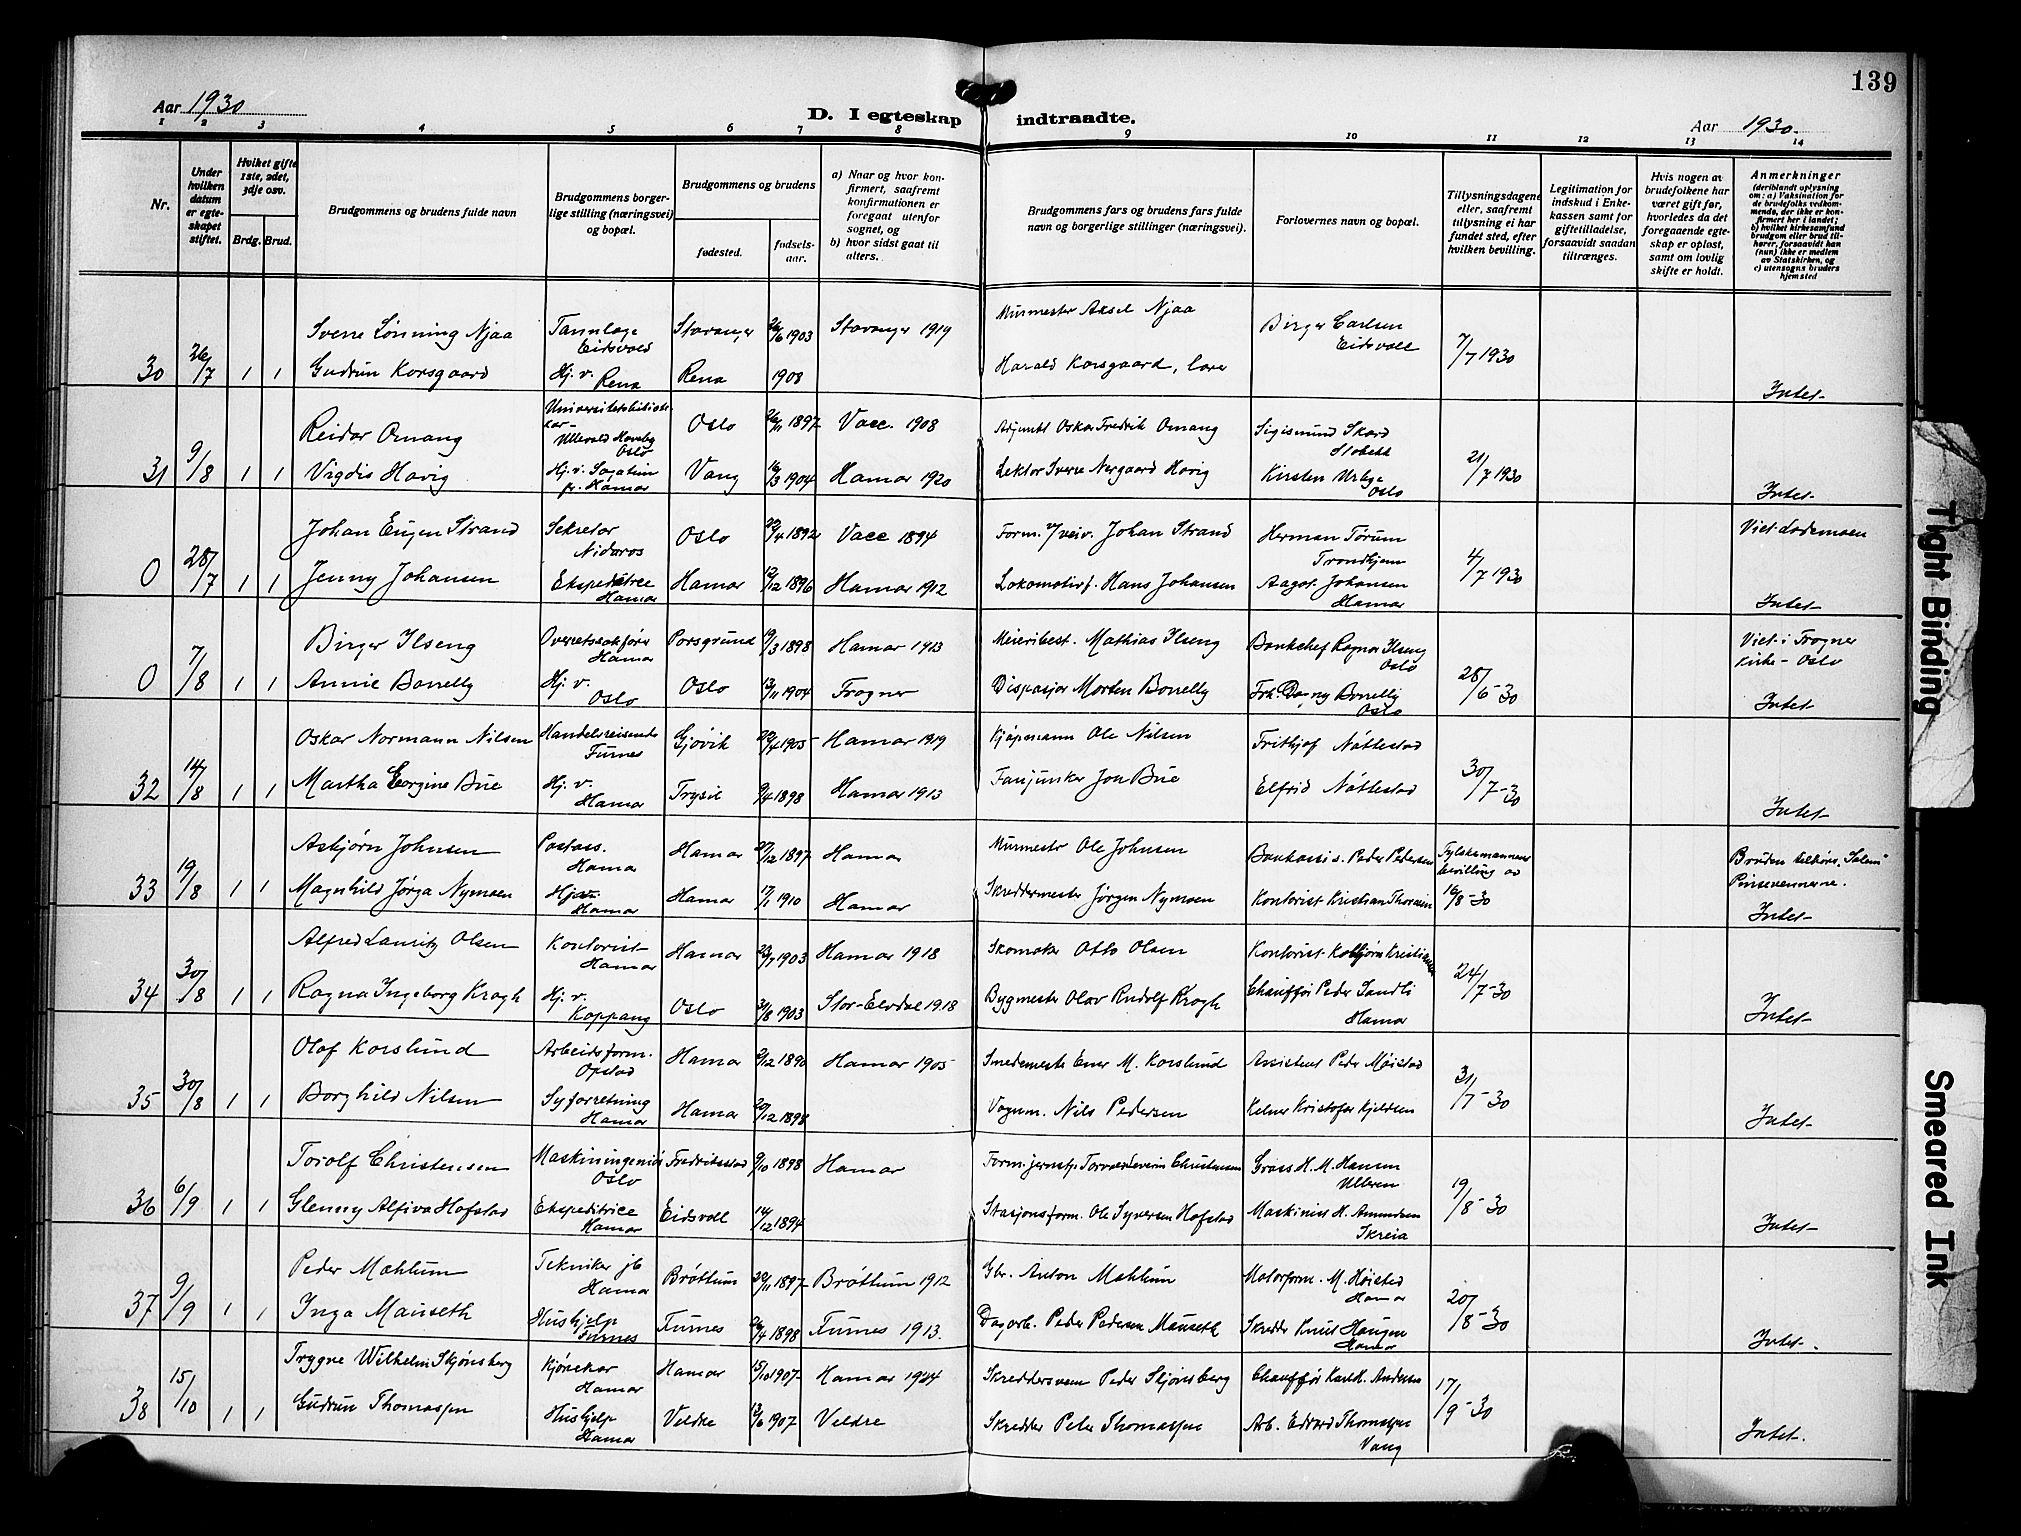 139
Aar 1930
D. I egteskap indtraadte.
Aar 1930.
1 2 3 4 5 6 7 8 9 10 11 12 13 14
Nr.
Under hvilken datum er egteskapet stiftet.
Hvilket gifte 1ste, 2det, 3dje osv.
Brdg. Brud.
Brudgommens og brudens fulde navn
Brudgommens borgerlige stilling (næringsvei) og bopæl.
Brudgommens og brudens
fødested.
fødselsaar.
a) Naar og hvor konfirmert, saafremt konfirmationen er foregaat utenfor sognet, og
b) hvor sidst gaat til alters.
Brudgommens fars og brudens fars fulde navn og borgerlige stillinger (næringsvei).
Forlovernes navn og bopæl.
Tillysningsdagene eller, saafremt tillysning ei har fundet sted, efter hvilken bevilling.
Legitimation for indskud i Enkekassen samt for giftetilladelse, forsaavidt saadan tiltrænges.
Hvis nogen av brudefolkene har været gift før, hvorledes da det foregaaende egteskap er opløst, samt om lovlig skifte er holdt.
Anmerkninger
(deriblandt oplysning om: a) Vaksination for de brudefolks vedkommende, der ikke er konfirmert her i landet; b) hvilket kirkesamfund brudgom eller brud tilhører, forsaavidt han (hun) ikke er medlem av Statskirken, og c) utensogns bruders hjemsted
Sverre Lønning Njaa Tannlæge Eidsvold Stavanger 26/6 1903 Stavanger 1919 Murmester Aksel Njaa Birger Carlsen Eidsvoll
30 26/7 1 1 Gudrun Korsgaard Hj. v. Rena Rena 1908 Harald Korsgaard, lærer 7/7 1930 Intet
Reidar Omang Universitetsbibliotekar Ullevold Haveby Oslo Oslo 26/11 1897 Vacc. 1908 Adjunkt Oskar Fredrik Omang Sigismund Skard
31 9/8 1 1 Vigdis Havig Hj. v. Hamar Vang 16/3 1904 Hamar 1920 Lektor Sverre Nergaard Havig Kirsten Oslo 21/7 1930 Intet
Johan Eugen Strand Sekretær Nidaros Oslo 22/4 1892 Vacc 1894 Form. v/ veiv. Johan Strand Herman Tørum Trondhjem Viet Lademoen
0 28/7 1 1 Jenny Johansen Ekspeditrice Hamar Hamar 12/12 1896 Hamar 1912 Lokomotivf. Hans Johansen Aagot Johansen Hamar 4/7 1930 Intet
Birger Ilseng Overretssakfører Hamar Porsgrund 19/3 1898 Hamar 1913 Meieribest. Mathias Ilseng Bankchef Ragnar Ilseng Oslo Viet i Frogner kirke - Oslo
0 7/8 1 1 Annie Borrelly Hj. v. Oslo Oslo 13/11 1904 Frogner Dispasjør Morten Borrelly Frk. Dagny Borrelly Oslo 28/6-30 Intet
Oskar Normann Nilsen Handelsreisende Furnes Gjøvik 22/4 1905 Hamar 1919 Kjøpmann Ole Nilsen Frithjof Nøttestad
32 14/8 1 1 Martha Georgine Bue Hj. v. Hamar Trysil 9/4 1898 Hamar 1913 Fanjunker Jon Bue Elfrid Nøttestad 30/7-30 Intet
Asbjørn Johnsen Postass. Hamar Hamar 27/12 1897 Hamar Murmester Ole Johnsen Bankassis. Peder Pedersen Fylkesmannens bevilling av Bruden tilhører "Salem" Pinsevennerne.
33 19/8 1 1 Magnhild Jørga Nymoen Hj. v. Hamar Hamar 17/1 1910 Hamar Skreddermester Jørgen Nymoen Kontorist Kristian Thoresen 16/8-30 Intet
Alfred Lauritz Olsen Kontorist Hamar Hamar 23/7 1903 Hamar 1918 Skomaker Otto Olsen Kontorist
34 30/8 1 1 Ragna Ingeborg Krogh Hj. v. Koppang Oslo 31/8 1903 Stor-Elvdal 1918 Bygmester Olav Rudolf Krogh Chauffør Peder Sandli Hamar 24/7-30 Intet
Olaf Korslund Arbeidsform. Opstad Hamar 9/12 1890 Hamar 1905 Smedemester Ener M. Korslund Assistent Peder Møistad
35 30/8 1 1 Borghild Nilsen Syforretning Hamar Hamar 20/12 1898 Vognm. Nils Pedersen Kelner Kristofer Kjeldsen 31/7-30 Intet
Torolf Christensen Maskiningeniør Oslo Fredrikstad 9/10 1898 Hamar Form. Severin Christensen Gross H. M. Hansen Ulleren
36 6/9 1 1 Glenny Alfiva Hofstad Ekspeditrice Hamar Eidsvoll 14/12 1894 Stasjonsform. Ole Syversen Hofstad Maskinist H. Amundsen Skreia 19/8-30 Intet
Peder Mæhlum Tekniker jb Hamar Brøttum 22/11 1897 Brøttum 1912 Gbr. Anton Mæhlum Motorform. M. Høistad Hamar
37 9/9 1 1 Inga Mauseth Hushjelp Furnes Furnes 26/4 1898 Furnes 1913. Dagarb. Peder Pedersen Mauseth Skredder Knut Haugen Hamar 20/8-30 Intet.
Trygve Wilhelm Skjønsberg Hamar Hamar 15/10 1907 Hamar 1924 Skreddersvenn Peder Skjønsberg Chauffør Karl K. Andersen
38 15/10 1 1 Gudrun Thomassen Hushjelp Hamar Veldre 13/6 1907 Veldre Skredder Peter Thomassen Arb. Edvard Thomassen Vang 17/9-30 Intet.
Tight Binding
Smeared Ink